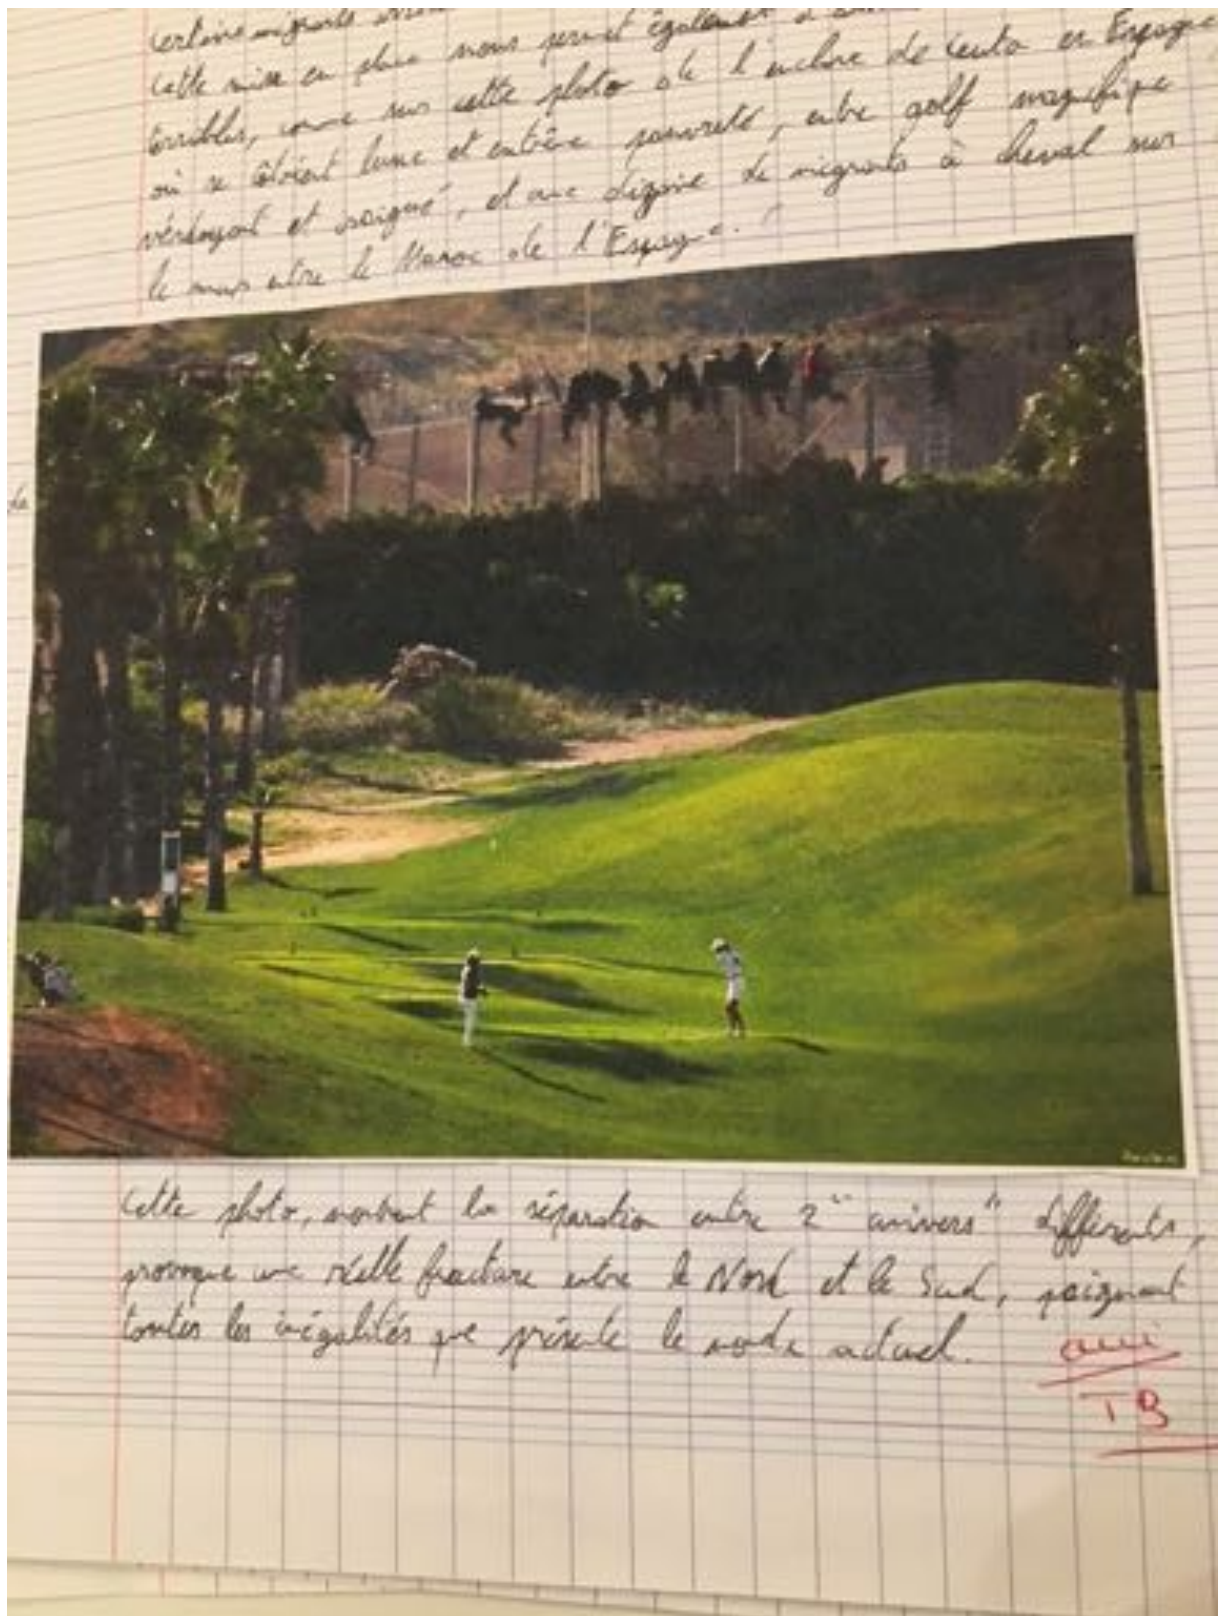 Cette mise en place nous permet également
terribles, comme sur cette photo de l'enclave de Ceuta en Espagne
où se côtoient luxe et extrême pauvreté, entre golf magnifique
verdoyant et soigné, et une dizaine de migrants à cheval sur
le mur entre le Maroc de l'Espagne.
de
Cette photo, montrant la séparation entre 2 "univers" différents,
provoque une réelle fracture entre le Nord et le Sud, peignant
toutes les inégalités que présente le monde actuel.
oui
TB